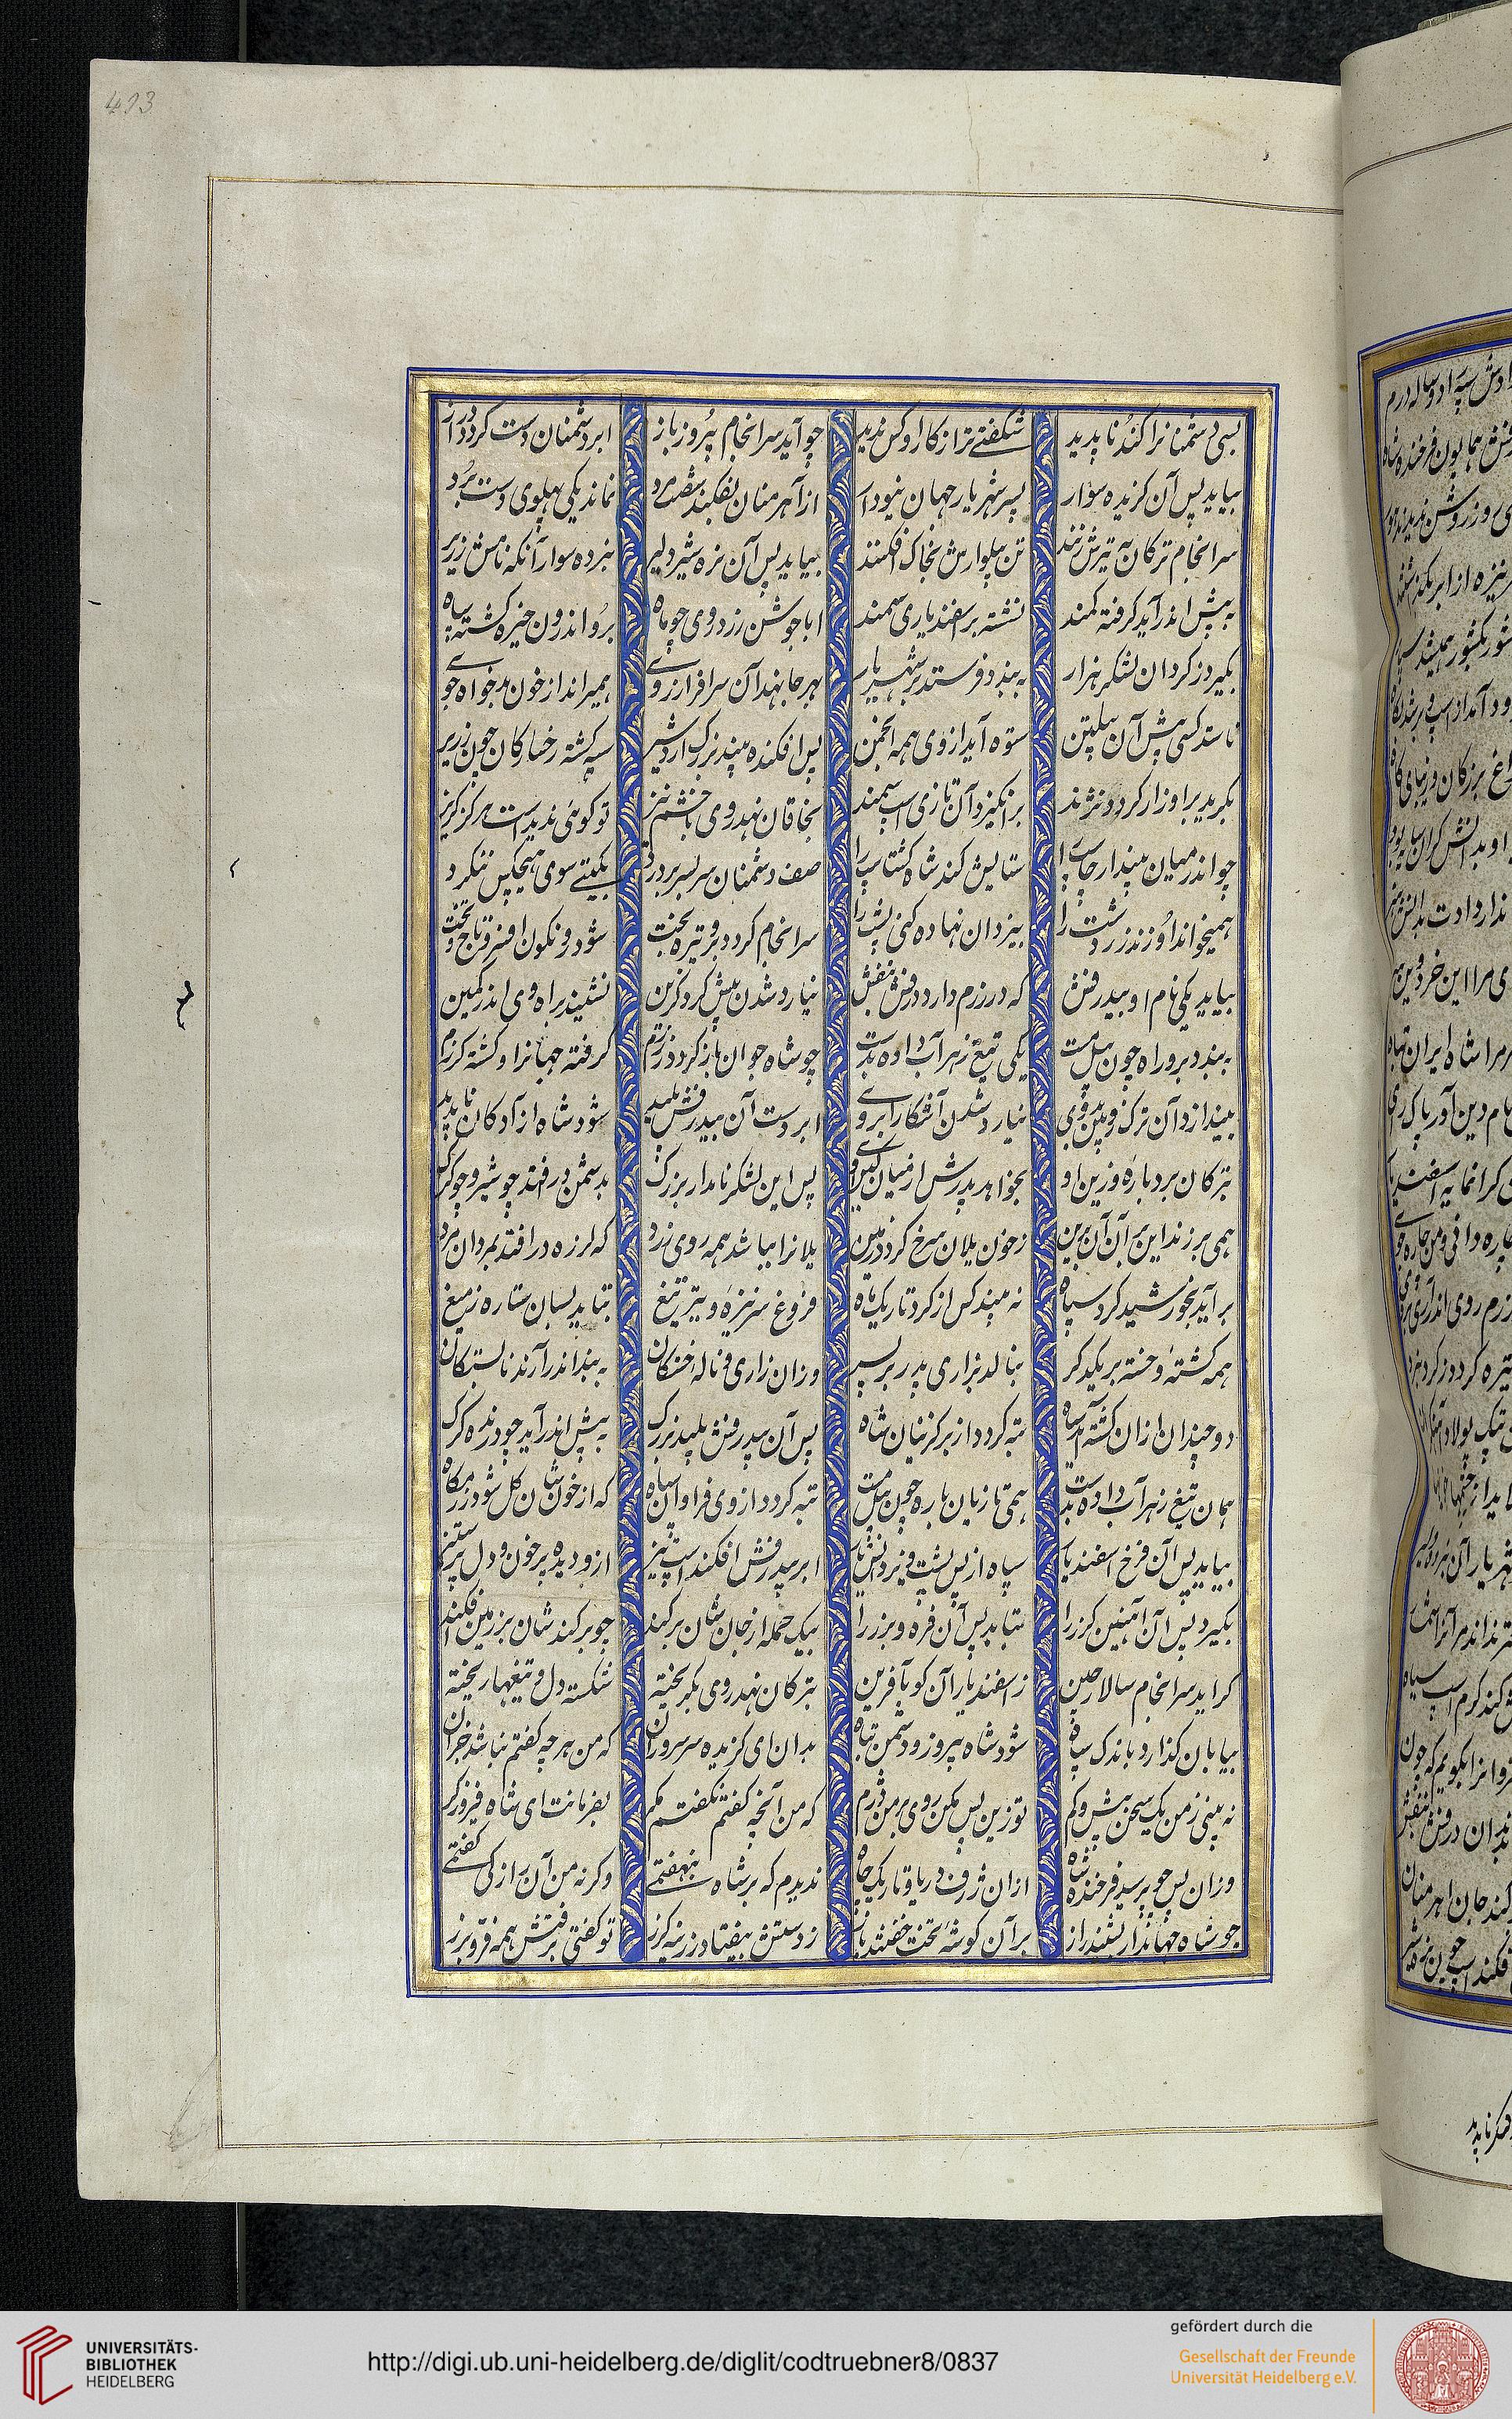 413
بسی دشمنانرا کند ناپدید شگفتی تر از کار او کس ندید چو آید سرانجام پیروز باز ابر دشمنان دست کرده دراز
بیاید پس آن گزیده سوار پسر شهریار جهان نیودار از آهرمنان بفکند شصت مرد نماند یکی پهلوی دست برد
سرانجام ترکان به تیرش زنند تن پیلوارش بخاک افکنند بیاید پس آن نره شیر دلیر نبرده سوار آنکه نامش زریر
به پیش اندر آید گرفته کمند نشسته بر اسفندیاری سمند ابا جوشن زرد روی چو ماه برو اندرون خیره گشته سپاه
بگیرد ز گردان لشکر هزار به بندد فرستد بر شهریار بهر جا بنهد آن سرافراز روی همیراند از خون بدخواه جوی
ناستد کسی پیش آن پیلتن ستوه آید از وی همه انجمن پس افکنده بیند بزرگ اردشیر سیه گشته رخسارگان چون زریر
بگرید بر او زار گردد نژند برانگیزد آن تازی اسپ سمند بخاقان نهد روی با خشم تیز تو گوئی ندیدست هرگز گریز
چو اندر میان بیند ارجاسپ را ستایش کند شاه گشتاسپ را صف دشمنان سربسر بردرد بگیتی سوی هیچکس ننگرد
همیخواند او زند زردشت را بیزدان نهاده کئی پشت را سرانجام گردد برو تیره بخت شود و نگون افسر و تاج و تخت
بیاید یکی نام او بیدرفش که در رزم دارد درفش بنفش نیارد شدن پیش گرد گزین نشیند براه وی اندر کمین
به بندد برو راه چون پیل مست یکی تیغ زهر آب داده بدست چو شاه جوان بازگردد ز رزم گرفته جهانرا و کشته گرزم
بیندازد آن ترک زوبین بروی نیارد شدن آشکارا بروی ابر دست آن بیدرفش پلید شود شاه آزادگان ناپدید
بترکان برد باره و زین او بخواهد پدرش از میان کین او پس این لشکر نامدار بزرگ بدشمن درافتد چو شیر و چو گرگ
همی برزند این بر آن آن برین ز خون یلان سرخ گردد زمین یلانرا بباشد همه روی زرد که لرزه درافتد بمردان مرد
برآید بخورشید گرد سپاه نه بیند کس از گرد تاریک ماه فروغ سر نیزه و تیر و تیغ بتابد بسان ستاره ز میغ
همه کشته و خسته بر یکدگر بنالد بزاری پدر بر پسر وزان زاری و ناله خستگان به بند اندر آرند نابستگان
دو چندان ازان کشته آید سپاه تبه گردد از برگزینان شاه پس آن بیدرفش پلید بزرگ به پیش اندر آید چو درنده گرگ
همان تیغ زهر آب داده بدست همی تازیان باره چون پیل مست تبه گردد از وی فراوان سپاه که از خونشان گل شود رزمگاه
بیاید پس آن فرخ اسفندیار سپاه از پس پشت و یزدانش یار ابر بیدرفش افکند اسپ تیز ازو دیده پر خون و دل پر ستیز
بگیرد پس آن آهنین گرز را بتابد پس آن فره و برز را بیک حمله از جان شان برکند چو برکندشان بر زمین افکند
گراید سرانجام سالار چین ز اسفندیار آن گو بآفرین بترکان نهد روی بگریخته شکسته دل و تیغها ریخته
بیابان گذارد باندک سپاه شود شاه پیروز و دشمن تباه بدان ای گزیده سر سروران که من هر چه گفتم نباشد جزان
نه بینی ز من یک سخن بیش و کم تو زین پس مکن روی بر من دژم که من آنچه گفتم نگفتم مگر بفرمانت ای شاه فیروزگر
وزان پس چو پرسید فرخنده شاه ازان ژرف دریا و تاریک چاه ندیدم که بر شاه بنهفتمی وگرنه من آن راز کی گفتمی
چو شاه جهاندار بشنید راز بر آن گوشه تخت خفتید باز ز دستش بیفتاد زرینه گرز تو گفتی برفتش همه فر و برز
UNIVERSITÄTS-
BIBLIOTHEK
HEIDELBERG
http://digi.ub.uni-heidelberg.de/diglit/codtruebner8/0837
gefördert durch die
Gesellschaft der Freunde
Universität Heidelberg e.V.